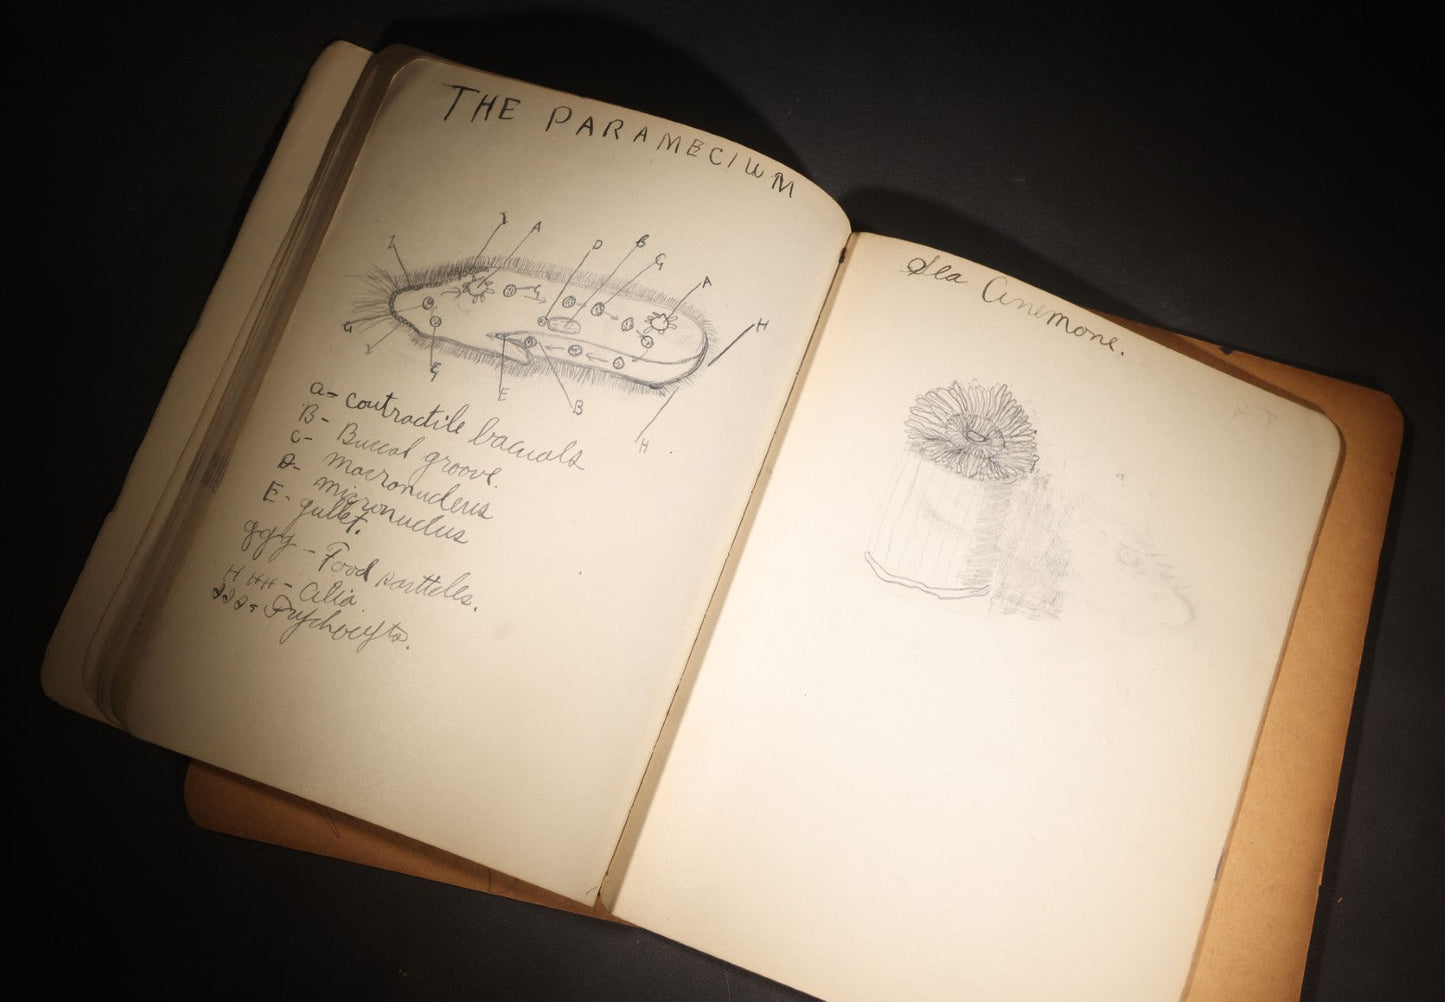 THE PARAMECIUM
A
D
B
G
A
H
G
E
B
H
a= contractile bacuols
B- Buccal groove.
C- Macronucleus
D- micronuclus
E- gullet.
ggg - Food partteles.
H HH - Cilia
Sea Anemone.